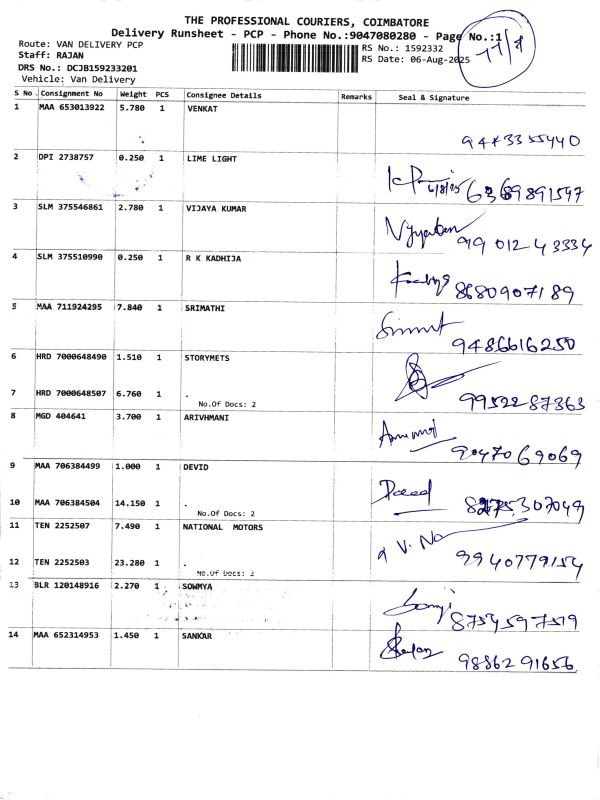 THE PROFESSIONAL COURIERS, COIMBATORE
Delivery Runsheet - PCP - Phone No.:9047080280 - Page No.:1
Route: VAN DELIVERY PCP
RS No.: 1592332
Staff: RAJAN
RS Date: 06-Aug-2025
DRS No.: DCJB159233201
Vehicle: Van Delivery
S No. Consignment No Weight PCS Consignee Details Remarks Seal & Signature
1 MAA 653013922 5.780 1 VENKAT
9443355440
2 DPI 2738757 0.250 1 LIME LIGHT
6/8/25 6369891547
3 SLM 375546861 2.780 1 VIJAYA KUMAR
99 012 43334
4 SLM 375510990 0.250 1 R K KADHIJA
8680907189
5 MAA 711924295 7.840 1 SRIMATHI
9486616250
6 HRD 7000648490 1.510 1 STORYMETS
7 HRD 7000648507 6.760 1 .
No.Of Docs: 2
9952287363
8 MGD 404641 3.700 1 ARIVHMANI
9047069069
9 MAA 706384499 1.000 1 DEVID
10 MAA 706384504 14.150 1 .
No.Of Docs: 2
11 TEN 2252507 7.490 1 NATIONAL MOTORS
12 TEN 2252503 23.280 1 .
No.Of Docs: 2
9940779154
13 BLR 120148916 2.270 1 SOWMYA
8754597519
14 MAA 652314953 1.450 1 SANKAR
98862 91656